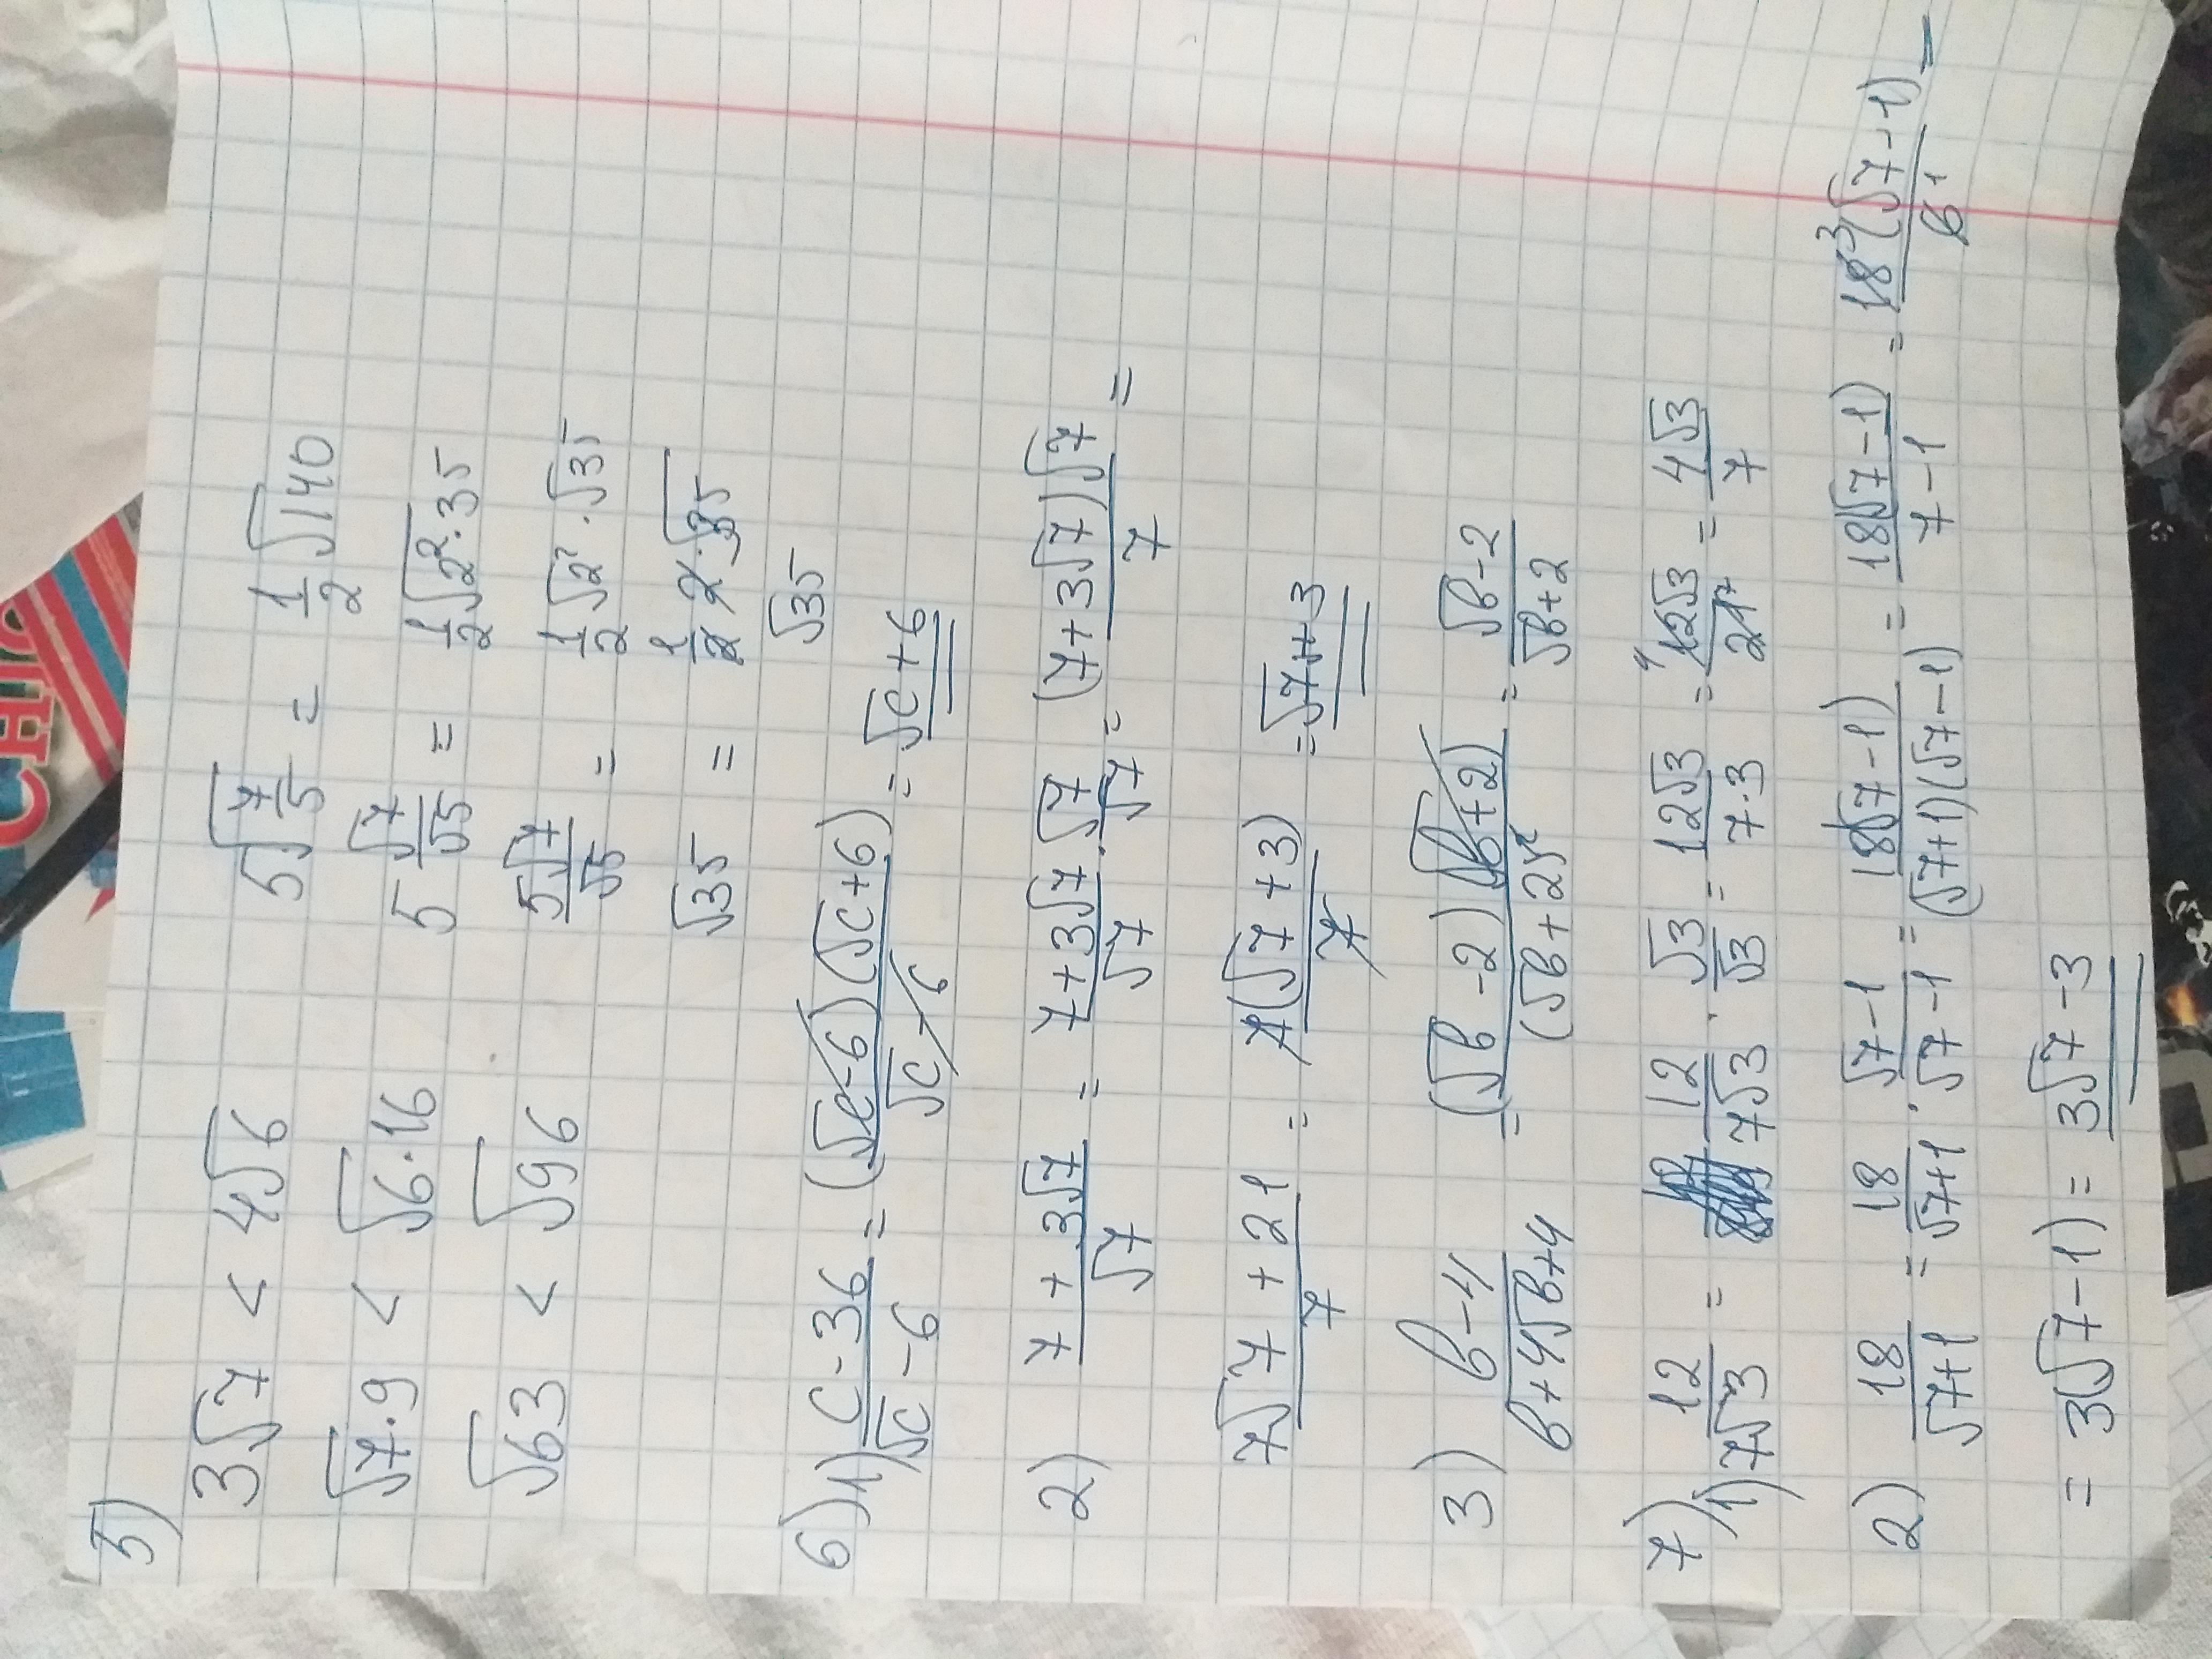 5)
3√7 < 4√6 5√(7/5) = 1/2 √140
√7·9 < √6·16 5 √7/√5 = 1/2 √2²·35
√63 < √96 5√7/√5 = 1/2 √2² · √35
√35 = 1/2 · 2 · √35
√35
6) 1) (c-36)/(√c-6) = ((√c-6)(√c+6))/(√c-6) = √c+6
2) (7+3√7)/√7 = (7+3√7)/√7 · √7/√7 = ((7+3√7)√7)/7 =
(7√7+21)/7 = 7(√7+3)/7 = √7+3
3) (b-4)/(b+4√b+4) = ((√b-2)(√b+2))/(√b+2)² = (√b-2)/(√b+2)
7) 1) 12/(7√3) = 12/(7√3) · √3/√3 = 12√3/(7·3) = 12√3/21 = 4√3/7
2) 18/(√7+1) = 18/(√7+1) · (√7-1)/(√7-1) = 18(√7-1)/((√7+1)(√7-1)) = 18(√7-1)/(7-1) = 18³(√7-1)/6¹ =
= 3(√7-1) = 3√7-3